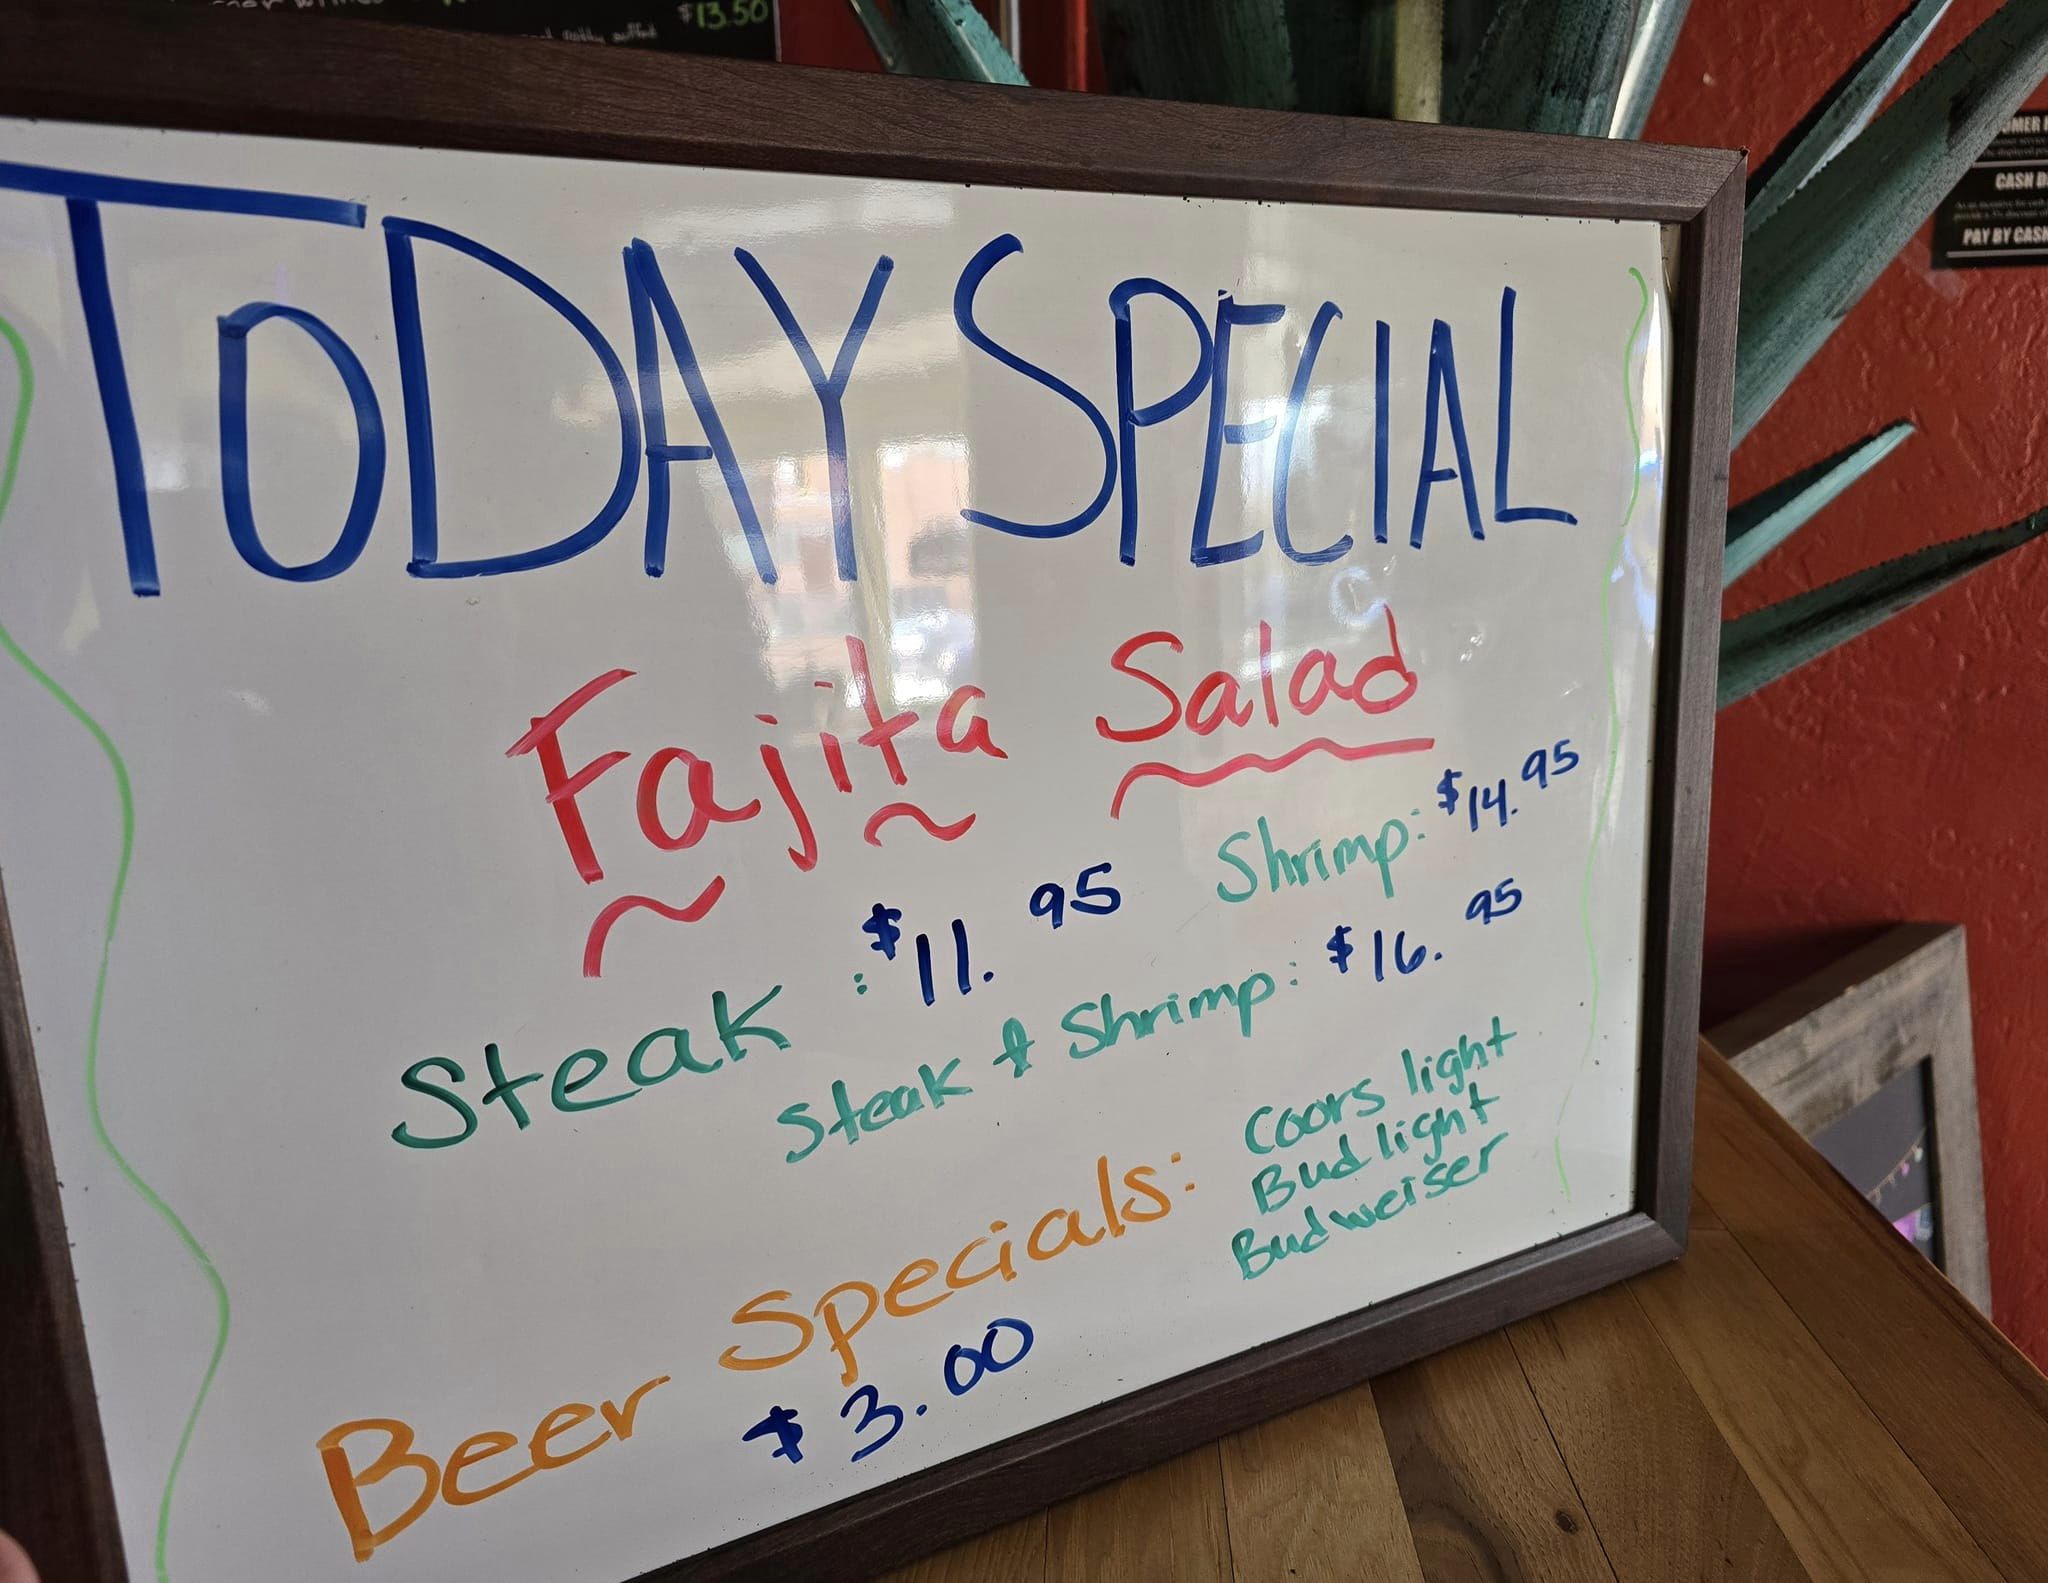 $13.50
TODAY SPECIAL
Fajita Salad
Steak : $11.95
Shrimp: $14.95
Steak & Shrimp: $16.95
Beer Specials:
$3.00
Coors light
Bud light
Budweiser
CASH
PAY BY CASH